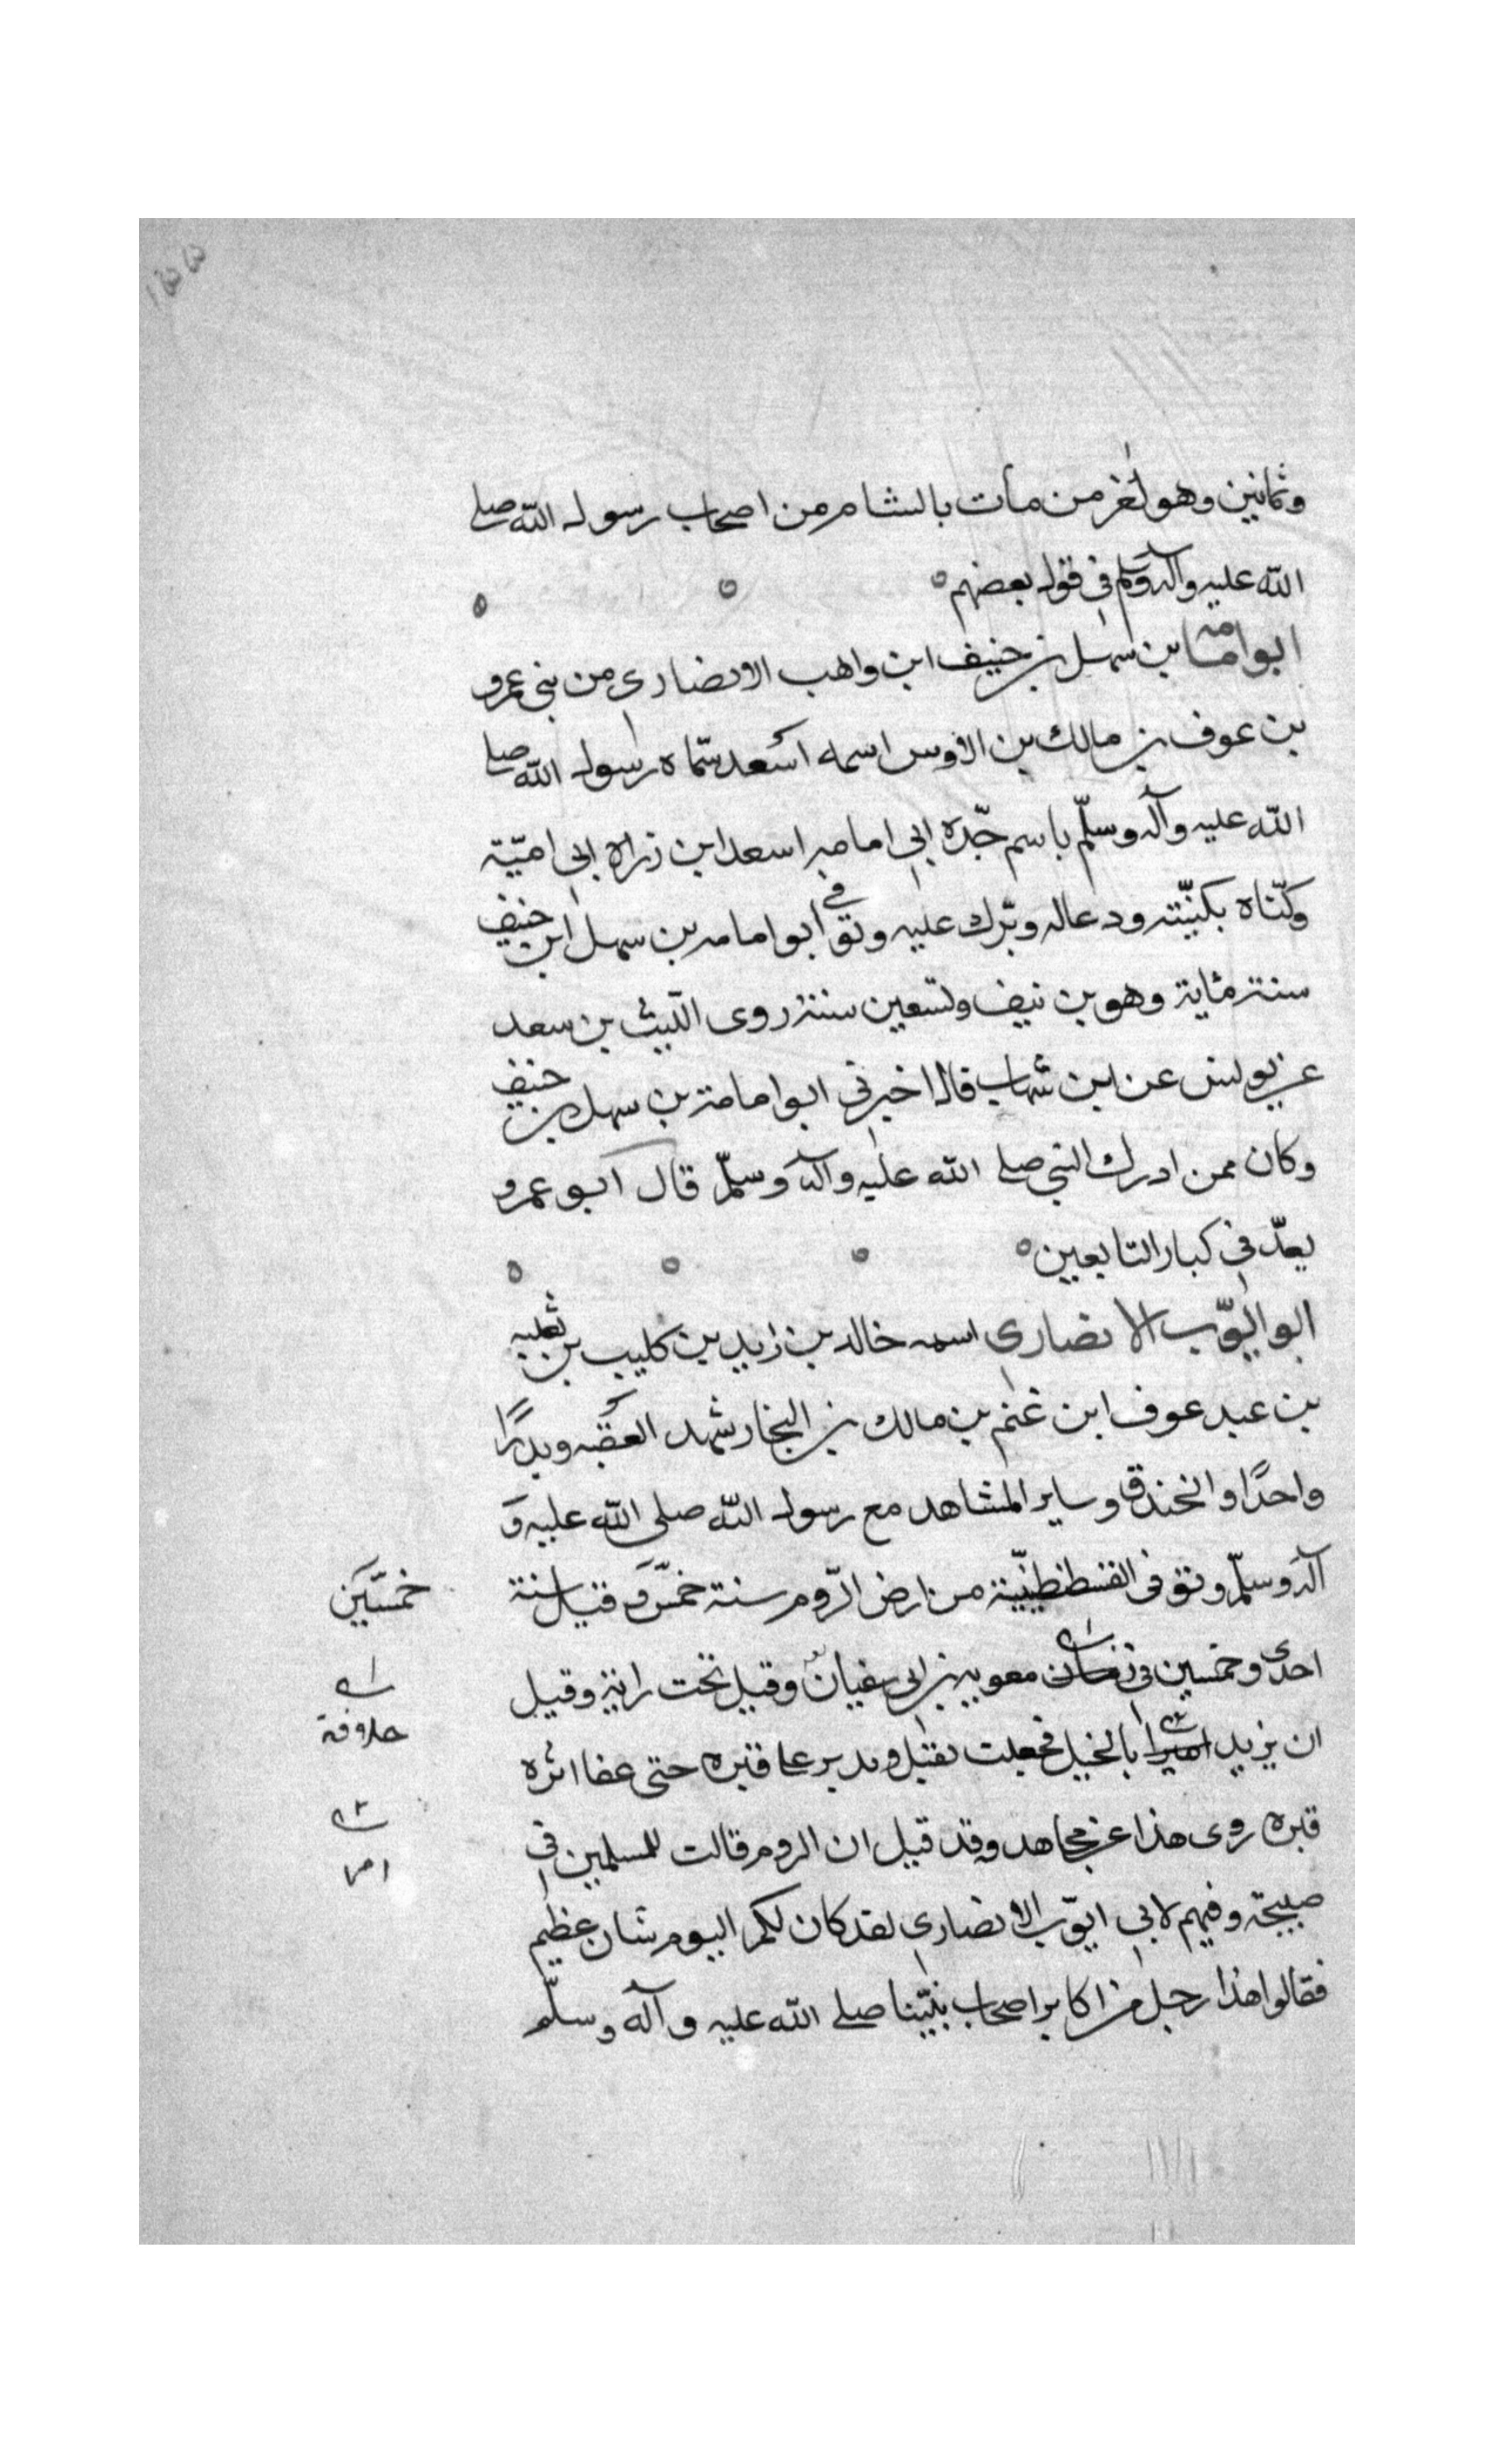 وثمانين وهو اخر من مات بالشام من اصحاب رسول الله صلى
الله عليه وآله وسلم فى قول بعضهم
ابو امامة بن سهل بن حنيف ابن واهب الانصارى من بنى عمرو
بن عوف بن مالك بن الاوس اسمه اسعد سمّاه رسول الله صلى
الله عليه وآله وسلّم باسم جدّه ابى امامه اسعد ابن زراره ابى اميّة
وكنّاه بكنيّته ودعاله وبرّك عليه وتوفى ابو امامه بن سهل ابن حنيف
سنة مئاية وهو بن نيف وتسعين سنة روى الليث بن سعد
عن يونس عن ابن شهاب قال اخبرنى ابو امامة بن سهل بن حنيف
وكان ممن ادرك النبى صلى الله عليه وآله وسلّم قال ابو عمرو
يعدّ فى كبار التابعين
ابو ايّوب الانصارى اسمه خالد بن زيد بن كليب بن ثعلبه
بن عبد عوف ابن غنم بن مالك بن النجار شهد العقبه وبدرًا
واحدًا والخندق وساير المشاهد مع رسول الله صلى الله عليه وَ
آله وسلّم وتوفى القسطنطنيّية من ارض الرّوم سنة خمس وقيل سنة
خمسين
احدى وخمسين فى معويه بن ابى سفيان وقيل تحت رايته وقيل
خلافة
ان يزيد امير بالخيل فجعلت تقبل وتدبر على قبره حتى عفا اثره
امر
قبره روى هذا عن مجاهد وقد قيل ان الروم قالت للمسلمين فى
صبيحة وفيهم لابى ايّوب الانصارى لقد كان لكم اليوم شان عظيم
فقالوا هذا رجل من اكابر اصحاب نبيّنا صلى الله عليه وآله وسلّم